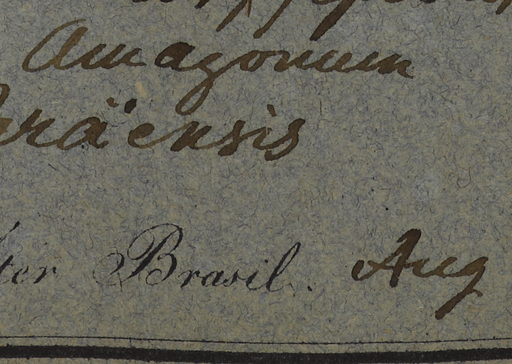 Amazonum
raënsis
ter Brasil. Aug